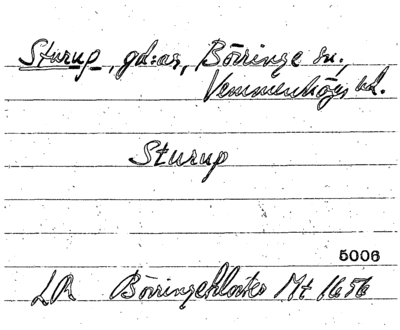 Sturup, gd:ar, Börringe sn,
Vemmenhögs hd.
Sturup
5006
LR Börringekloster Mt 1656